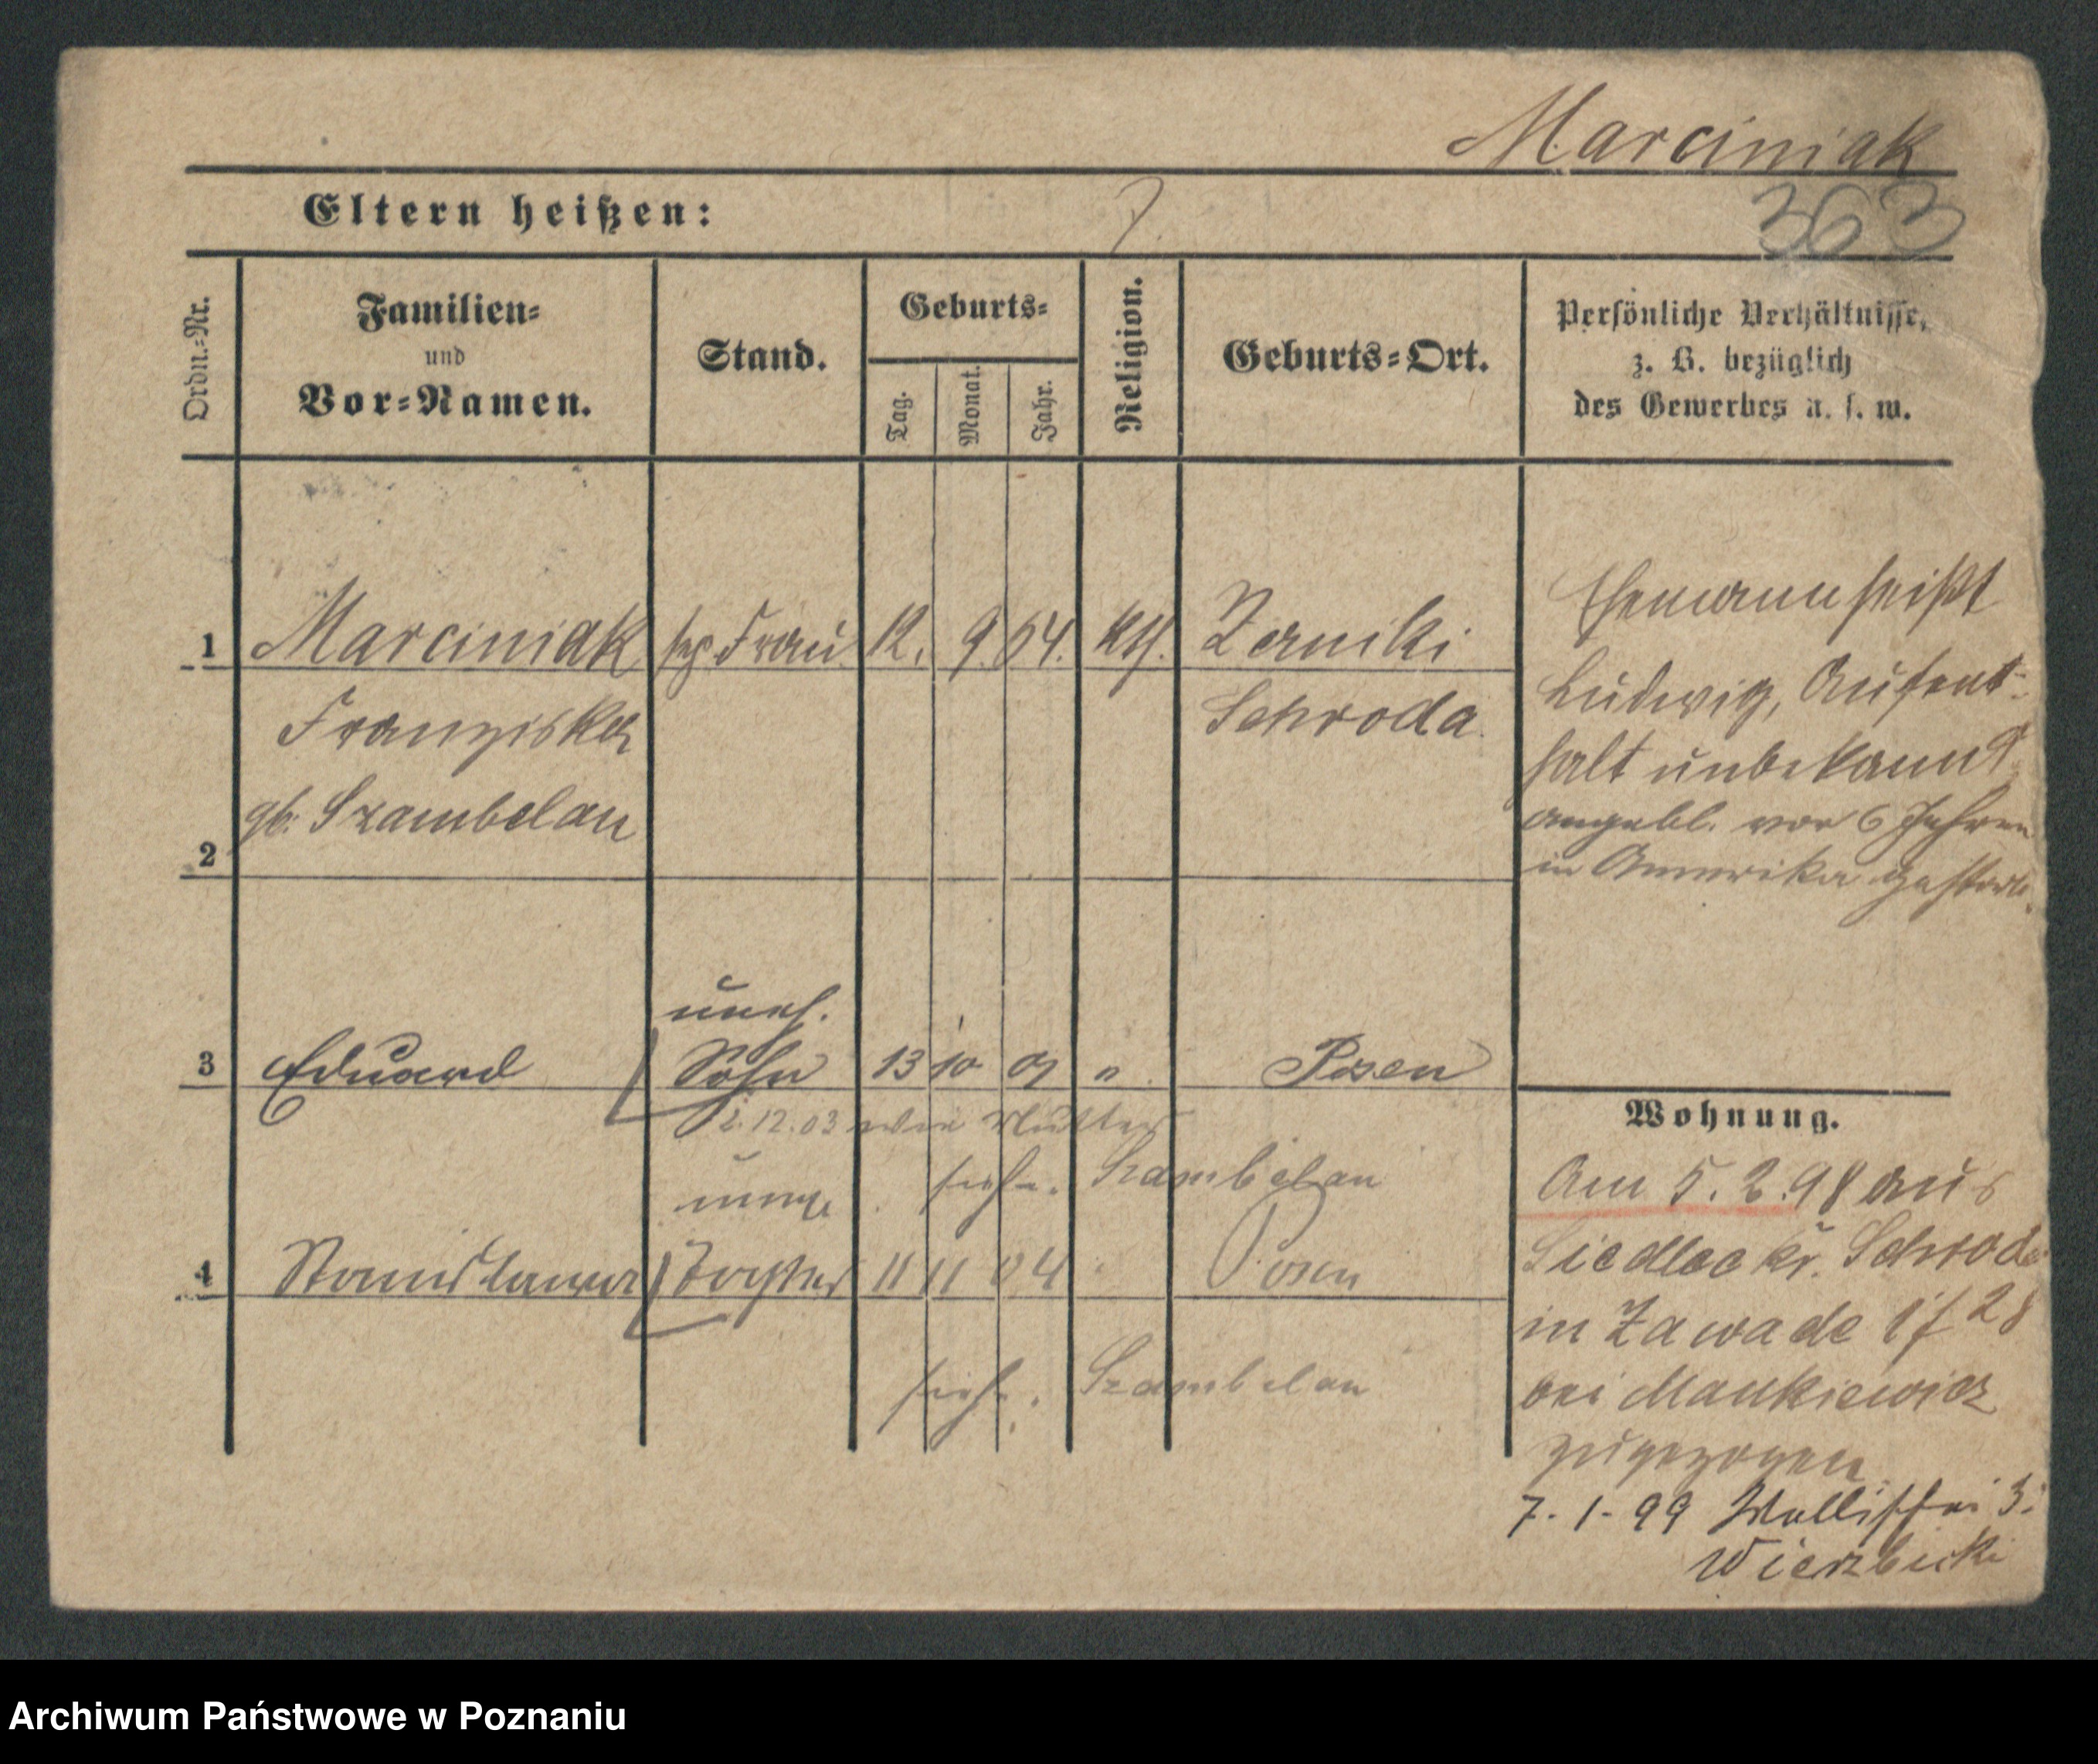 Marciniak
363
Eltern heißen: ?
Ordn.-Nr.
Familien-
und
Vor-Namen.
Stand.
Geburts-
Tag.
Monat.
Jahr.
Religion.
Geburts-Ort.
Persönliche Verhältnisse,
z. B. bezüglich
des Gewerbes u. s. w.
1 Marciniak sep. Frau 12. 9. 64. kth. Zerniki
Franziska Schroda.
gb. Szambelan
2
Ehemann heißt
Ludwig, Aufent-
halt unbekannt
angebl. vor 6 Jahren
in Amerika
uneh.
3 Eduard Sohn 13 10 01 " Posen
2.12.03 Mutter
siehe. Szambelan
4 Stanislawa Tochter 11 11 04 Posen
siehe. Szambelan
Wohnung.
Am 5.2.98 aus
Siedlec kr. Schroda
in Zawade 28
bei Mankiewicz
zugezogen
7.1.99 Wallischei 3.
Wierzbicki
Archiwum Państwowe w Poznaniu